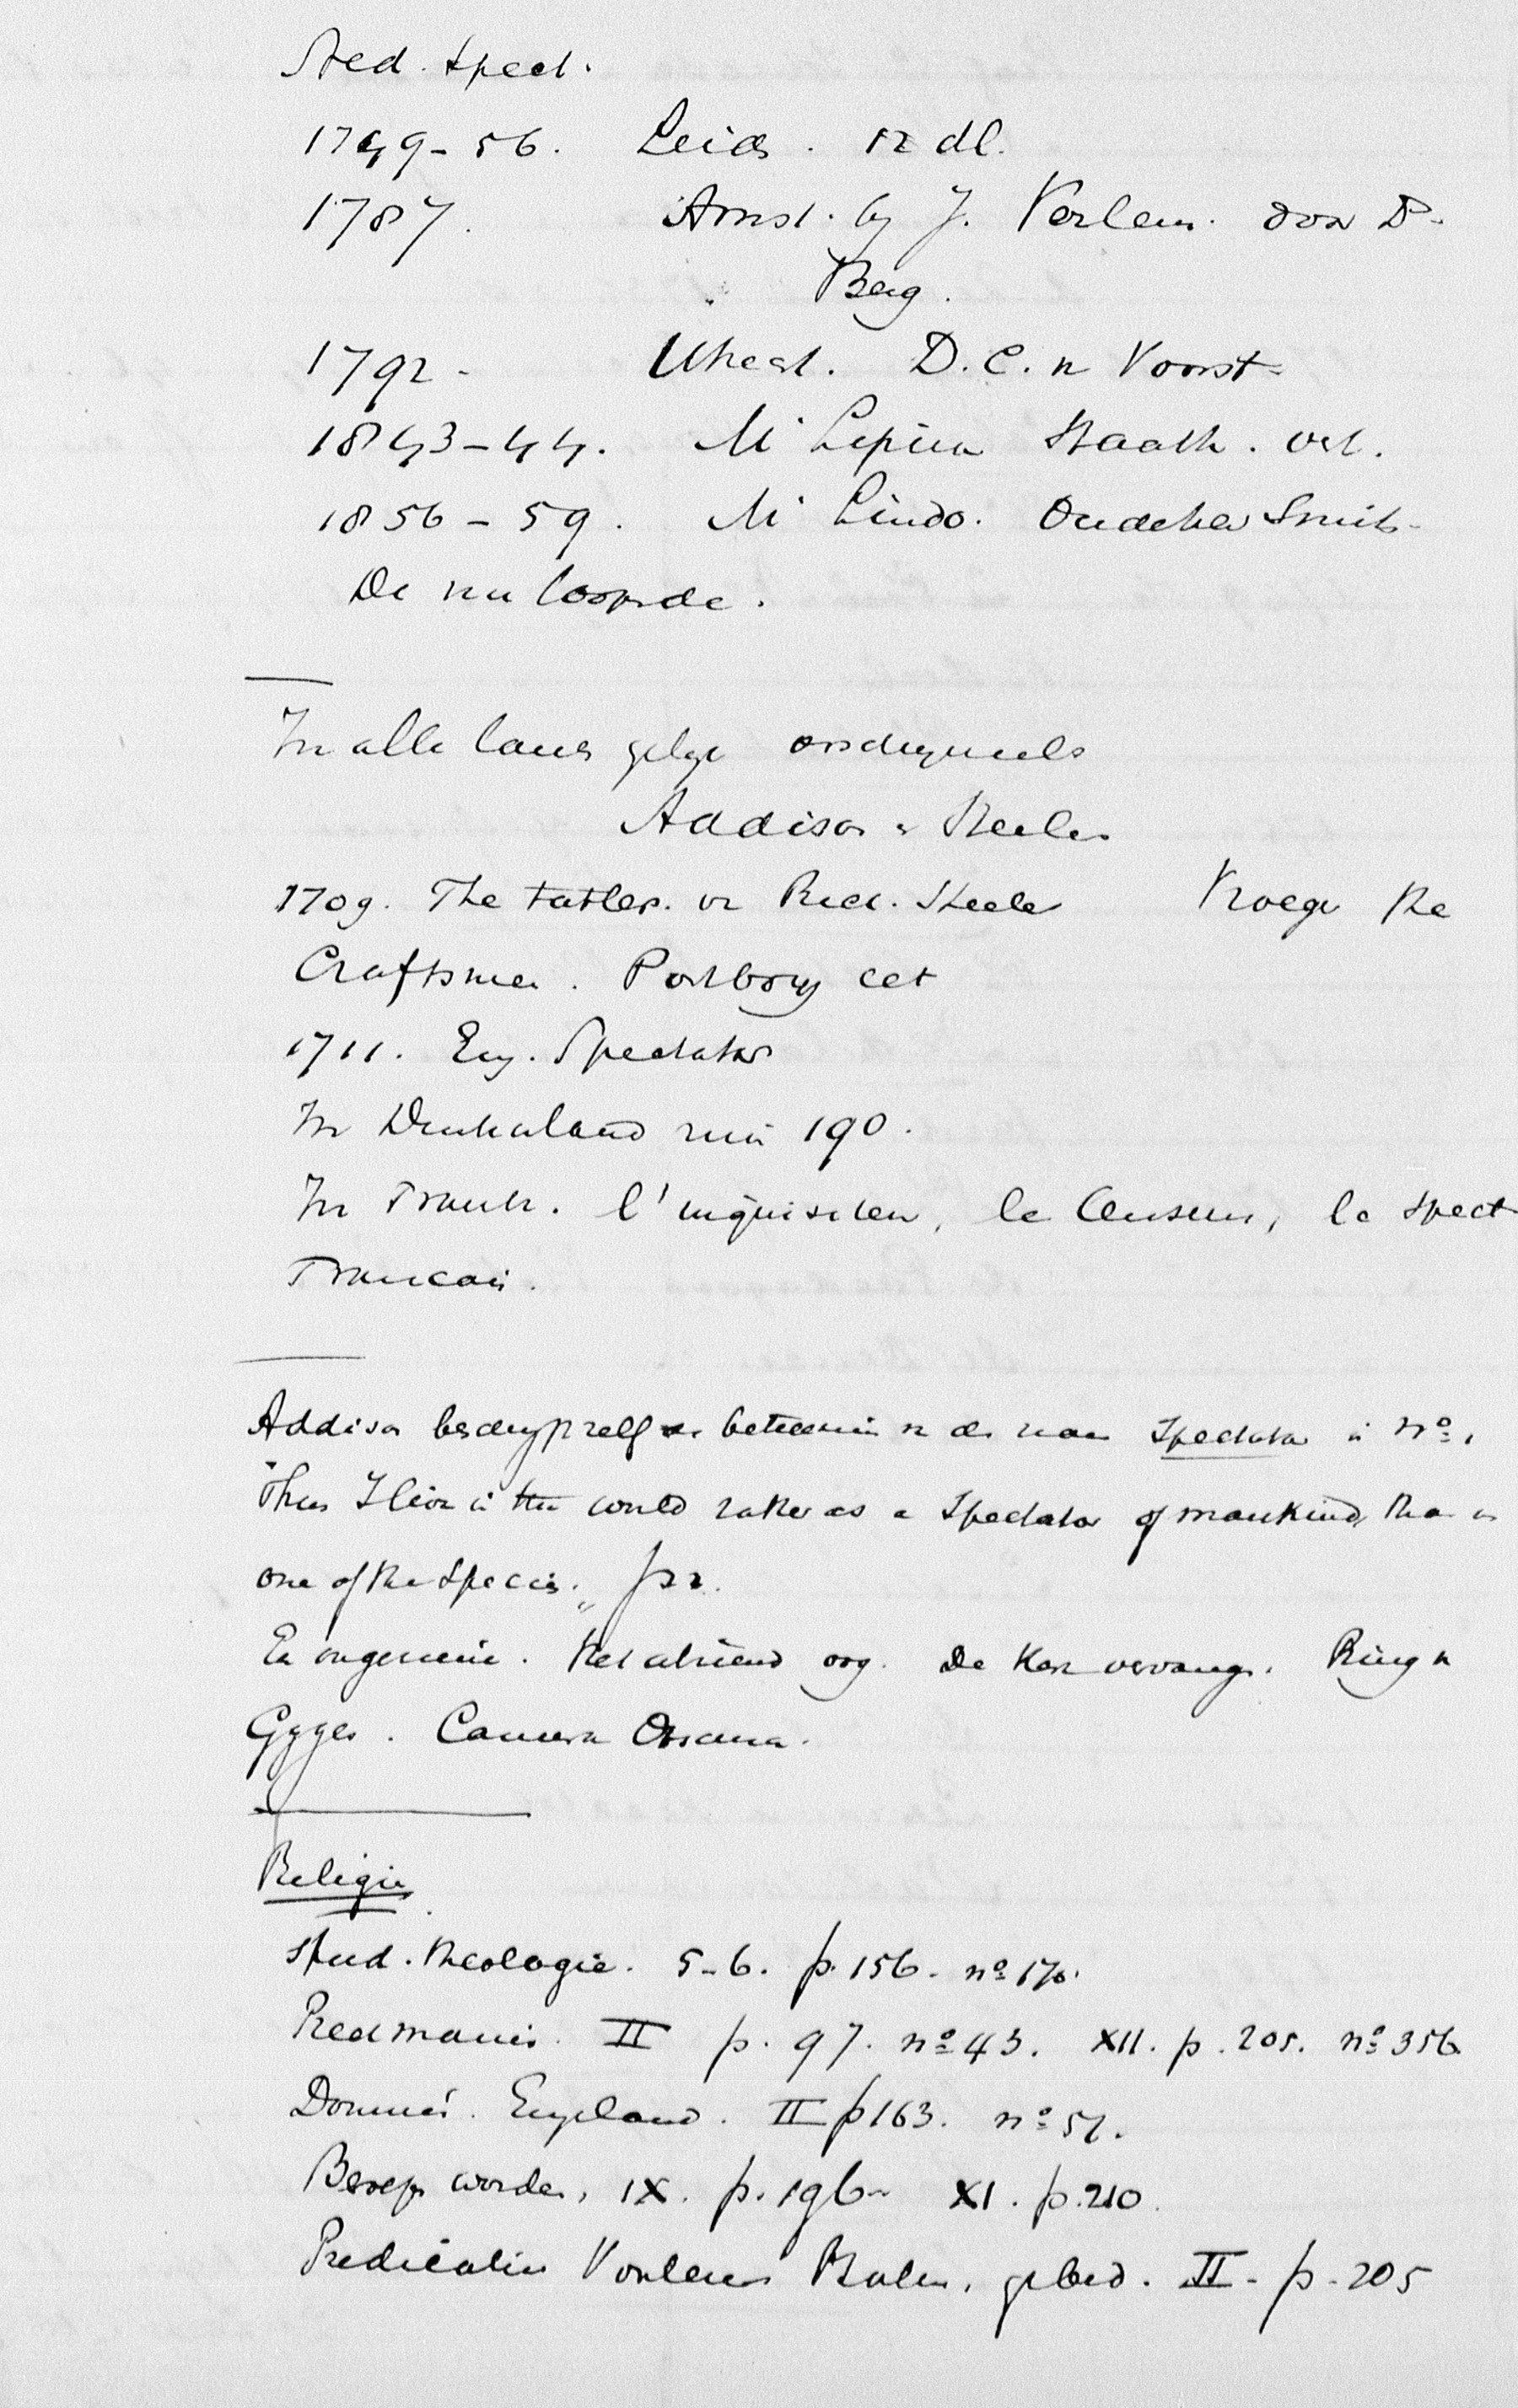 Ned. Spect.
1749-56. Leid. 12 dl.
1787. Amst. by J. Verlem. door D.
Berg.
1792. Utrecht. D. C. v Voorst.
1843-44. Mr Lipman Staatk. vert.
1856-59. Mr Lindo. Oudeheer Smits.
De nu loopende.
In alle landen
Addison & Steele
1709. The tatler. v Rich. Steele Vroeger the
Craftsman. Postboy cet
1711. Eng. Spectator
In Duitschland ruim 190.
In Frankr. l'inquisiteur, le Censeur, le Spect
Francais.
Addison beschryft zelf de beteekenis v de naam Spectator in No 1.
"Thus I live in the world rather as a Spectator of mankind, than as
one of the species." p 2.
Het alziend oog. De Ker vervangen. Ring v
Gyges. Camera Obscura.
Religie
Stud. theologie. 5-6. p. 156. no 170.
Predmanier. II p. 97. no 43. XII. p. 205. no 356
Dominé's. Engeland. II p 163. no 51.
Beroep worden, IX. p. 196 XI. p. 210.
Predicatie Voorlezen Psalm, gebed. II. p. 205